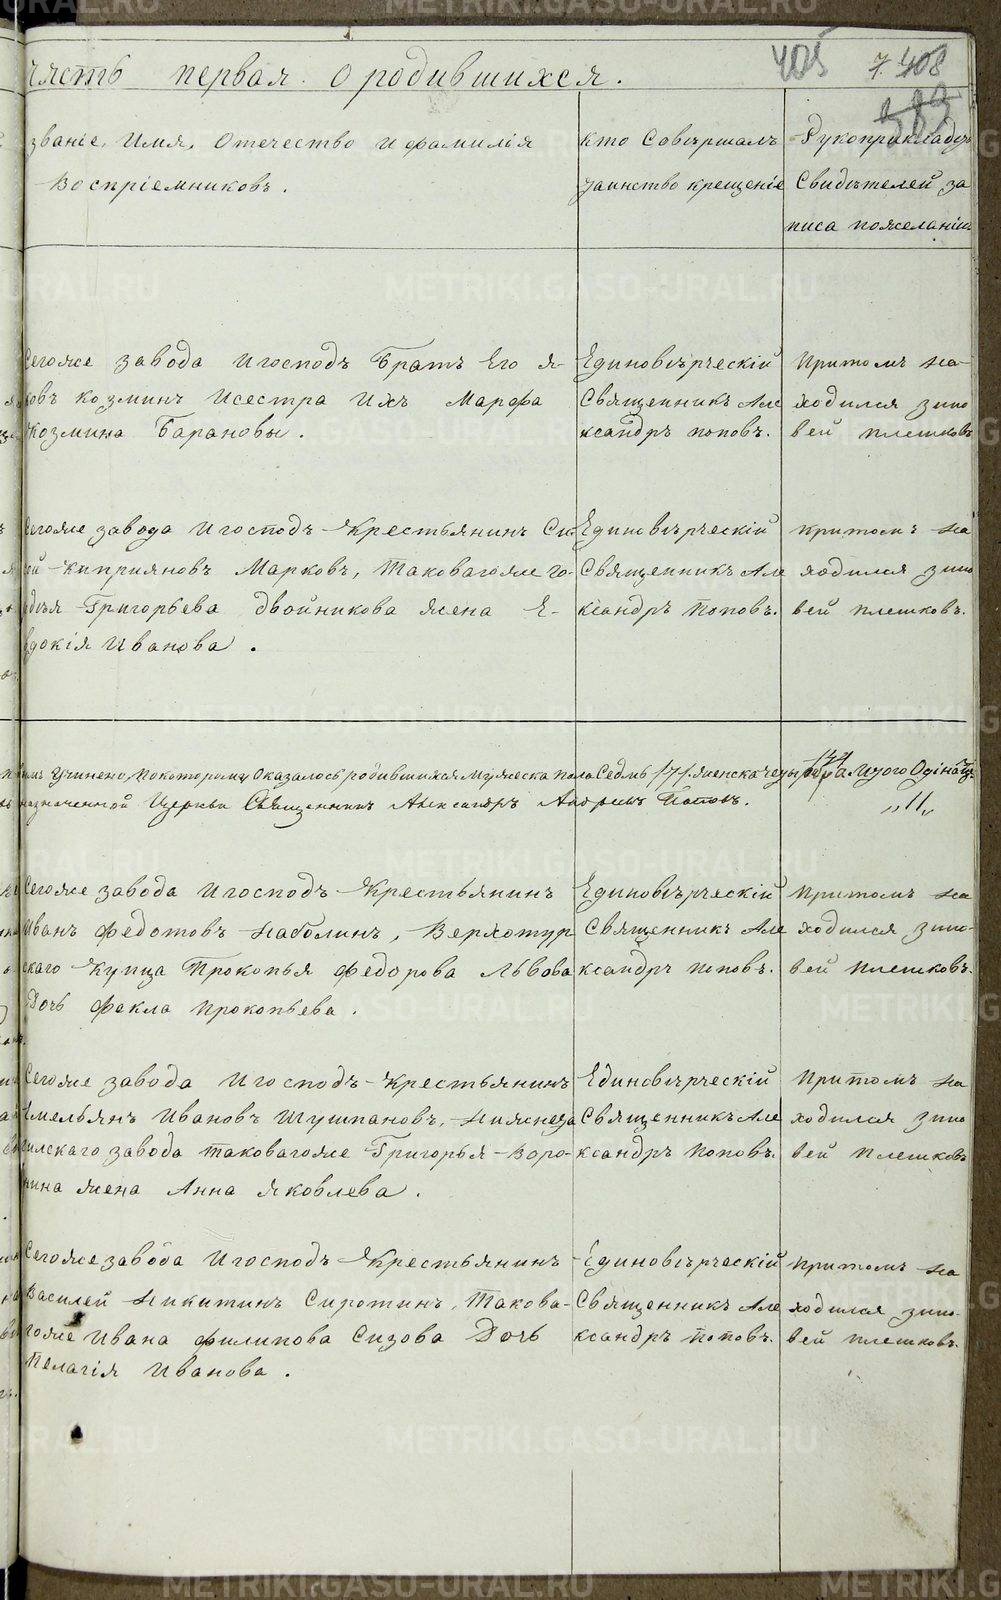 часть первая. о родившихся.
405 7. 408
званіе, Имя, Отечество и фамилія
Воспріемниковъ.
кто Совершалъ
таинство крещеніе
Рукоприкладст
Свидѣтелей за
писа пожеланію
Сегоже завода и господъ Братъ Его Я-
ковъ козминъ и сестра ихъ Марфа
Козмина Барановы.
Единовѣрческій
Священникъ Але
ксандръ поповъ.
Притомъ на-
ходился зино
вей плешковъ
Сегоже завода и господъ Крестьянинъ Сы-
сой Киприяновъ Марковъ, таковагоже го-
Григорьева двойникова жена Е-
вдокія Иванова.
Единовѣрческій
Священникъ Але
ксандръ Поповъ.
притомъ на
ходился зино
вей плешковъ.
Учинено, покоторому Оказалось родившихся мужеска пола Седмь /7/. женска четыре /4/ а Итого Одінатц.
назначенной Церкви Священникъ Александръ Андреевъ Поповъ. „11„
Сегоже завода и господъ Крестьянинъ
Иванъ Федотовъ Наболинъ, Верхотур
скаго Купца Прокопья Федорова Львова
Дочь Фекла Прокопьева.
Единовѣрческій
Священникъ Але
ксандръ поповъ.
Притомъ на
ходился зино-
вей плешковъ.
Сегоже завода и господъ Крестьянинъ
Емельянъ Ивановъ Шушпановъ, Нижнета
гилскаго завода таковагоже Григорья Воро-
нина жена Анна Яковлева.
Единовѣрческій
Священникъ Але
ксандръ поповъ.
Притомъ на
ходился зино
вей Плешковъ
Сегоже завода и господъ Крестьянинъ
Василей Никитинъ Сиротинъ, такова-
гоже Ивана Филипова Сизова Дочь
Пелагія Иванова.
Единовѣрческій
Священникъ Але
ксандръ поповъ.
Притомъ на
ходился зино-
вей плешковъ.
METRIKI.GASO-URAL.RU